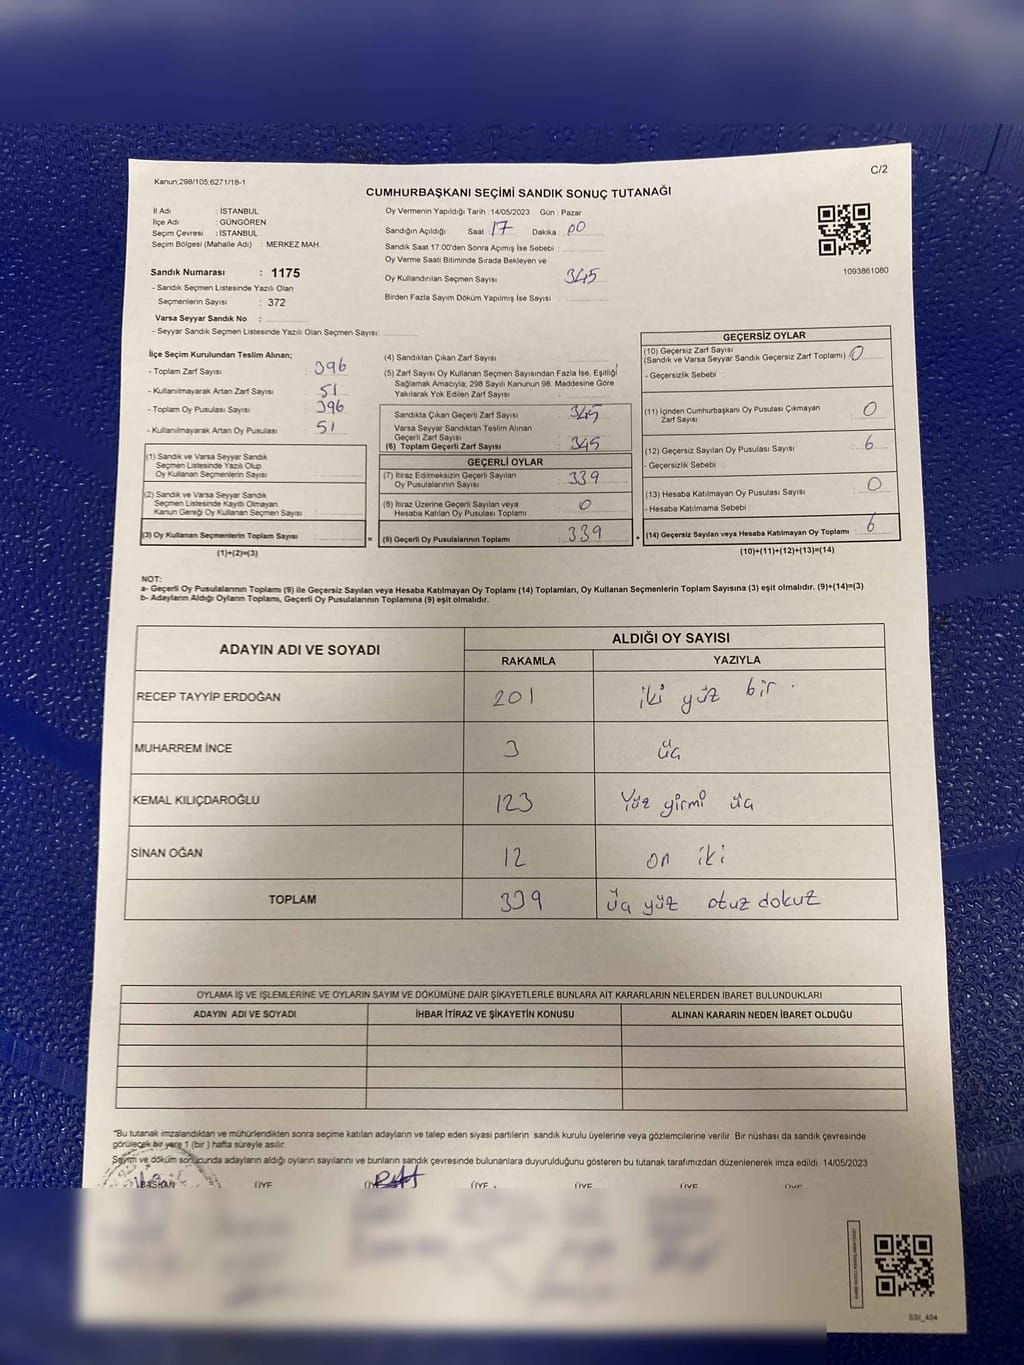 Kanun;298/105;6271/18-1
C/2
CUMHURBAŞKANI SEÇİMİ SANDIK SONUÇ TUTANAĞI
İl Adı : İSTANBUL
İlçe Adı : GÜNGÖREN
Seçim Çevresi : İSTANBUL
Seçim Bölgesi (Mahalle Adı) : MERKEZ MAH.
Sandık Numarası : 1175
- Sandık Seçmen Listesinde Yazılı Olan
Seçmenlerin Sayısı : 372
Varsa Seyyar Sandık No :
- Seyyar Sandık Seçmen Listesinde Yazılı Olan Seçmen Sayısı:
Oy Vermenin Yapıldığı Tarih : 14/05/2023 Gün : Pazar
Sandığın Açıldığı Saat 17 Dakika 00
Sandık Saat 17:00'den Sonra Açımış İse Sebebi :
Oy Verme Saati Bitiminde Sırada Bekleyen ve
Oy Kullandırılan Seçmen Sayısı : 345
Birden Fazla Sayım Döküm Yapılmış İse Sayısı :
1093861080
İlçe Seçim Kurulundan Teslim Alınan;
- Toplam Zarf Sayısı : 396
- Kullanılmayarak Artan Zarf Sayısı : 51
- Toplam Oy Pusulası Sayısı : 396
- Kullanılmayarak Artan Oy Pusulası : 51
(1) Sandık ve Varsa Seyyar Sandık
Seçmen Listesinde Yazılı Olup
Oy Kullanan Seçmenlerin Sayısı :
(2) Sandık ve Varsa Seyyar Sandık
Seçmen Listesinde Kayıtlı Olmayan
Kanun Gereği Oy Kullanan Seçmen Sayısı :
(3) Oy Kullanan Seçmenlerin Toplam Sayısı :
(1)+(2)=(3)
(4) Sandıktan Çıkan Zarf Sayısı :
(5) Zarf Sayısı Oy Kullanan Seçmen Sayısından Fazla İse, Eşitliği
Sağlamak Amacıyla, 298 Sayılı Kanunun 98. Maddesine Göre
Yakılarak Yok Edilen Zarf Sayısı :
Sandıkta Çıkan Geçerli Zarf Sayısı : 345
Varsa Seyyar Sandıktan Teslim Alınan
Geçerli Zarf Sayısı :
(6) Toplam Geçerli Zarf Sayısı : 345
GEÇERLİ OYLAR
(7) İtiraz Edilmeksizin Geçerli Sayılan
Oy Pusulalarının Sayısı : 339
(8) İtiraz Üzerine Geçerli Sayılan veya
Hesaba Katılan Oy Pusulası Toplamı : 0
= (9) Geçerli Oy Pusulalarının Toplamı : 339 +
GEÇERSİZ OYLAR
(10) Geçersiz Zarf Sayısı
(Sandık ve Varsa Seyyar Sandık Geçersiz Zarf Toplamı) : 0
- Geçersizlik Sebebi :
(11) İçinden Cumhurbaşkanı Oy Pusulası Çıkmayan
Zarf Sayısı : 0
(12) Geçersiz Sayılan Oy Pusulası Sayısı : 6
- Geçersizlik Sebebi :
(13) Hesaba Katılmayan Oy Pusulası Sayısı : 0
- Hesaba Katılmama Sebebi :
(14) Geçersiz Sayılan veya Hesaba Katılmayan Oy Toplamı : 6
(10)+(11)+(12)+(13)=(14)
NOT:
a- Geçerli Oy Pusulalarının Toplamı (9) ile Geçersiz Sayılan veya Hesaba Katılmayan Oy Toplamı (14) Toplamları, Oy Kullanan Seçmenlerin Toplam Sayısına (3) eşit olmalıdır. (9)+(14)=(3)
b- Adayların Aldığı Oyların Toplamı, Geçerli Oy Pusulalarının Toplamına (9) eşit olmalıdır.
ADAYIN ADI VE SOYADI
ALDIĞI OY SAYISI
RAKAMLA YAZIYLA
RECEP TAYYİP ERDOĞAN 201 iki yüz bir
MUHARREM İNCE 3 üç
KEMAL KILIÇDAROĞLU 123 Yüz yirmi üç
SİNAN OĞAN 12 on iki
TOPLAM 339 üç yüz otuz dokuz
OYLAMA İŞ VE İŞLEMLERİNE VE OYLARIN SAYIM VE DÖKÜMÜNE DAİR ŞİKAYETLERLE BUNLARA AİT KARARLARIN NELERDEN İBARET BULUNDUKLARI
ADAYIN ADI VE SOYADI İHBAR İTİRAZ VE ŞİKAYETİN KONUSU ALINAN KARARIN NEDEN İBARET OLDUĞU
*Bu tutanak imzalandıktan ve mühürlendikten sonra seçime katılan adayların ve talep eden siyasi partilerin sandık kurulu üyelerine veya gözlemcilerine verilir. Bir nüshası da sandık çevresinde
görülecek bir yere 1 (bir ) hafta süreyle asılır.
Sayım ve döküm sonucunda adayların aldığı oyların sayılarını ve bunların sandık çevresinde bulunanlara duyurulduğunu gösteren bu tutanak tarafımızdan düzenlenerek imza edildi. 14/05/2023
BAŞKAN ÜYE ÜYE ÜYE ÜYE ÜYE ÜYE
SSI_404